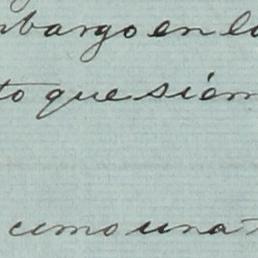 mbargo en lo
to que siem
como una